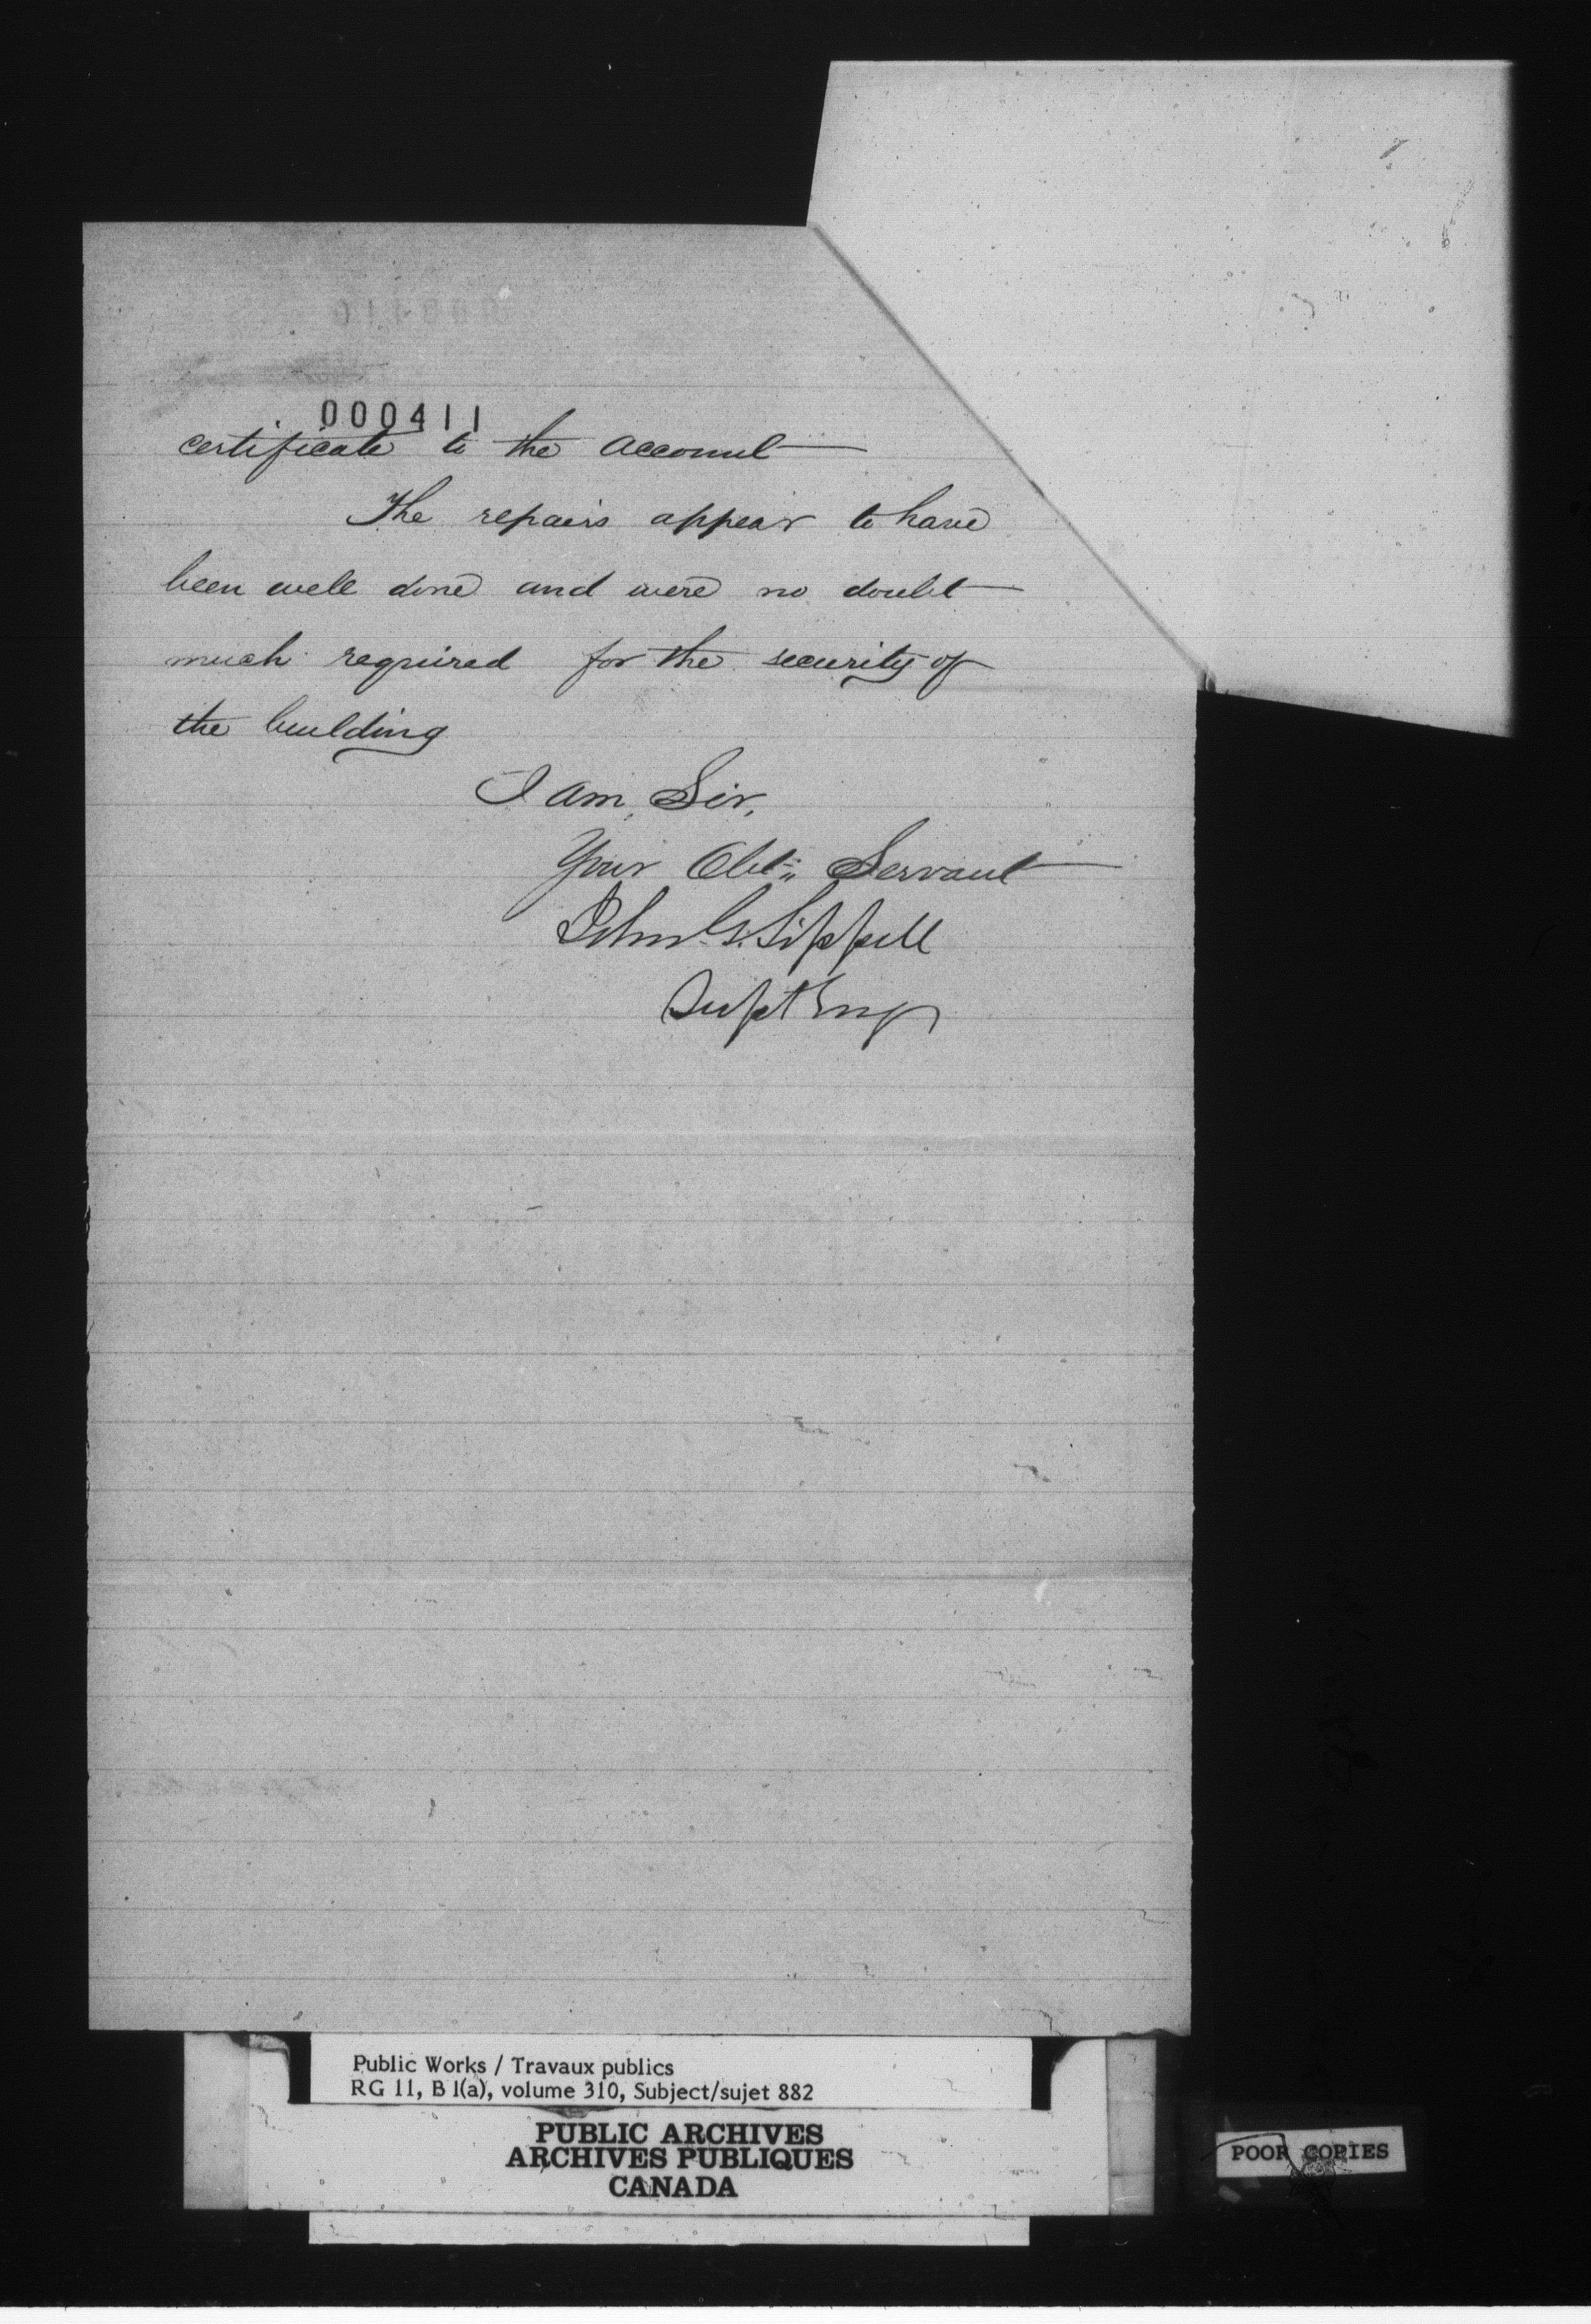 000411
certificate to the account
The repairs appear to have
been well done and were no doubt
much required for the security of
the building
I am, Sir,
Your Obt Servant
John G. Sippell
Supt Engr
Public Works / Travaux publics
RG 11, B 1(a), volume 310, Subject/sujet 882
PUBLIC ARCHIVES
ARCHIVES PUBLIQUES
CANADA
POOR COPIES